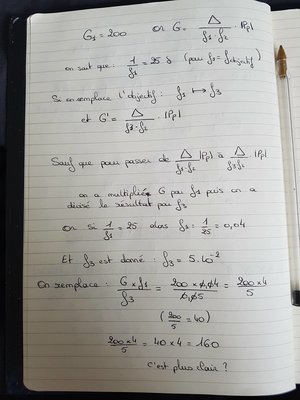 G₁ = 200 or G = Δ / f₁·f₂ · |Pp|
on sait que : 1/f₁ = 25 δ (pour f₁ = f objectif)
Si on remplace l'objectif : f₁ ↦ f₃
et G' = Δ / f₃·f₂ · |Pp|
Sauf que pour passer de Δ / f₁·f₂ |Pp| à Δ / f₃f₂ · |Pp|
on a multiplié G par f₁ puis on a
divisé le résultat par f₃
Or si 1/f₁ = 25 alors f₁ = 1/25 = 0,04
Et f₃ est donné : f₃ = 5.10⁻²
On remplace : G × f₁ / f₃ = 200 × 0,04 / 0,05 = 200 × 4 / 5
(200/5 = 40)
200 × 4 / 5 = 40 × 4 = 160
c'est plus clair ?